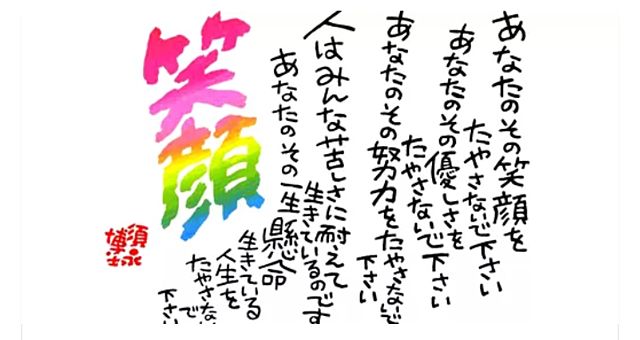 笑顔
あなたのその笑顔を
たやさないで下さい
あなたのその優しさを
たやさないで下さい
あなたのその努力をたやさないで
下さい
人はみんな苦しさに耐えて
生きているのです
あなたのその一生懸命
生きている
人生を
たやさない
で
下さい
須永
博士